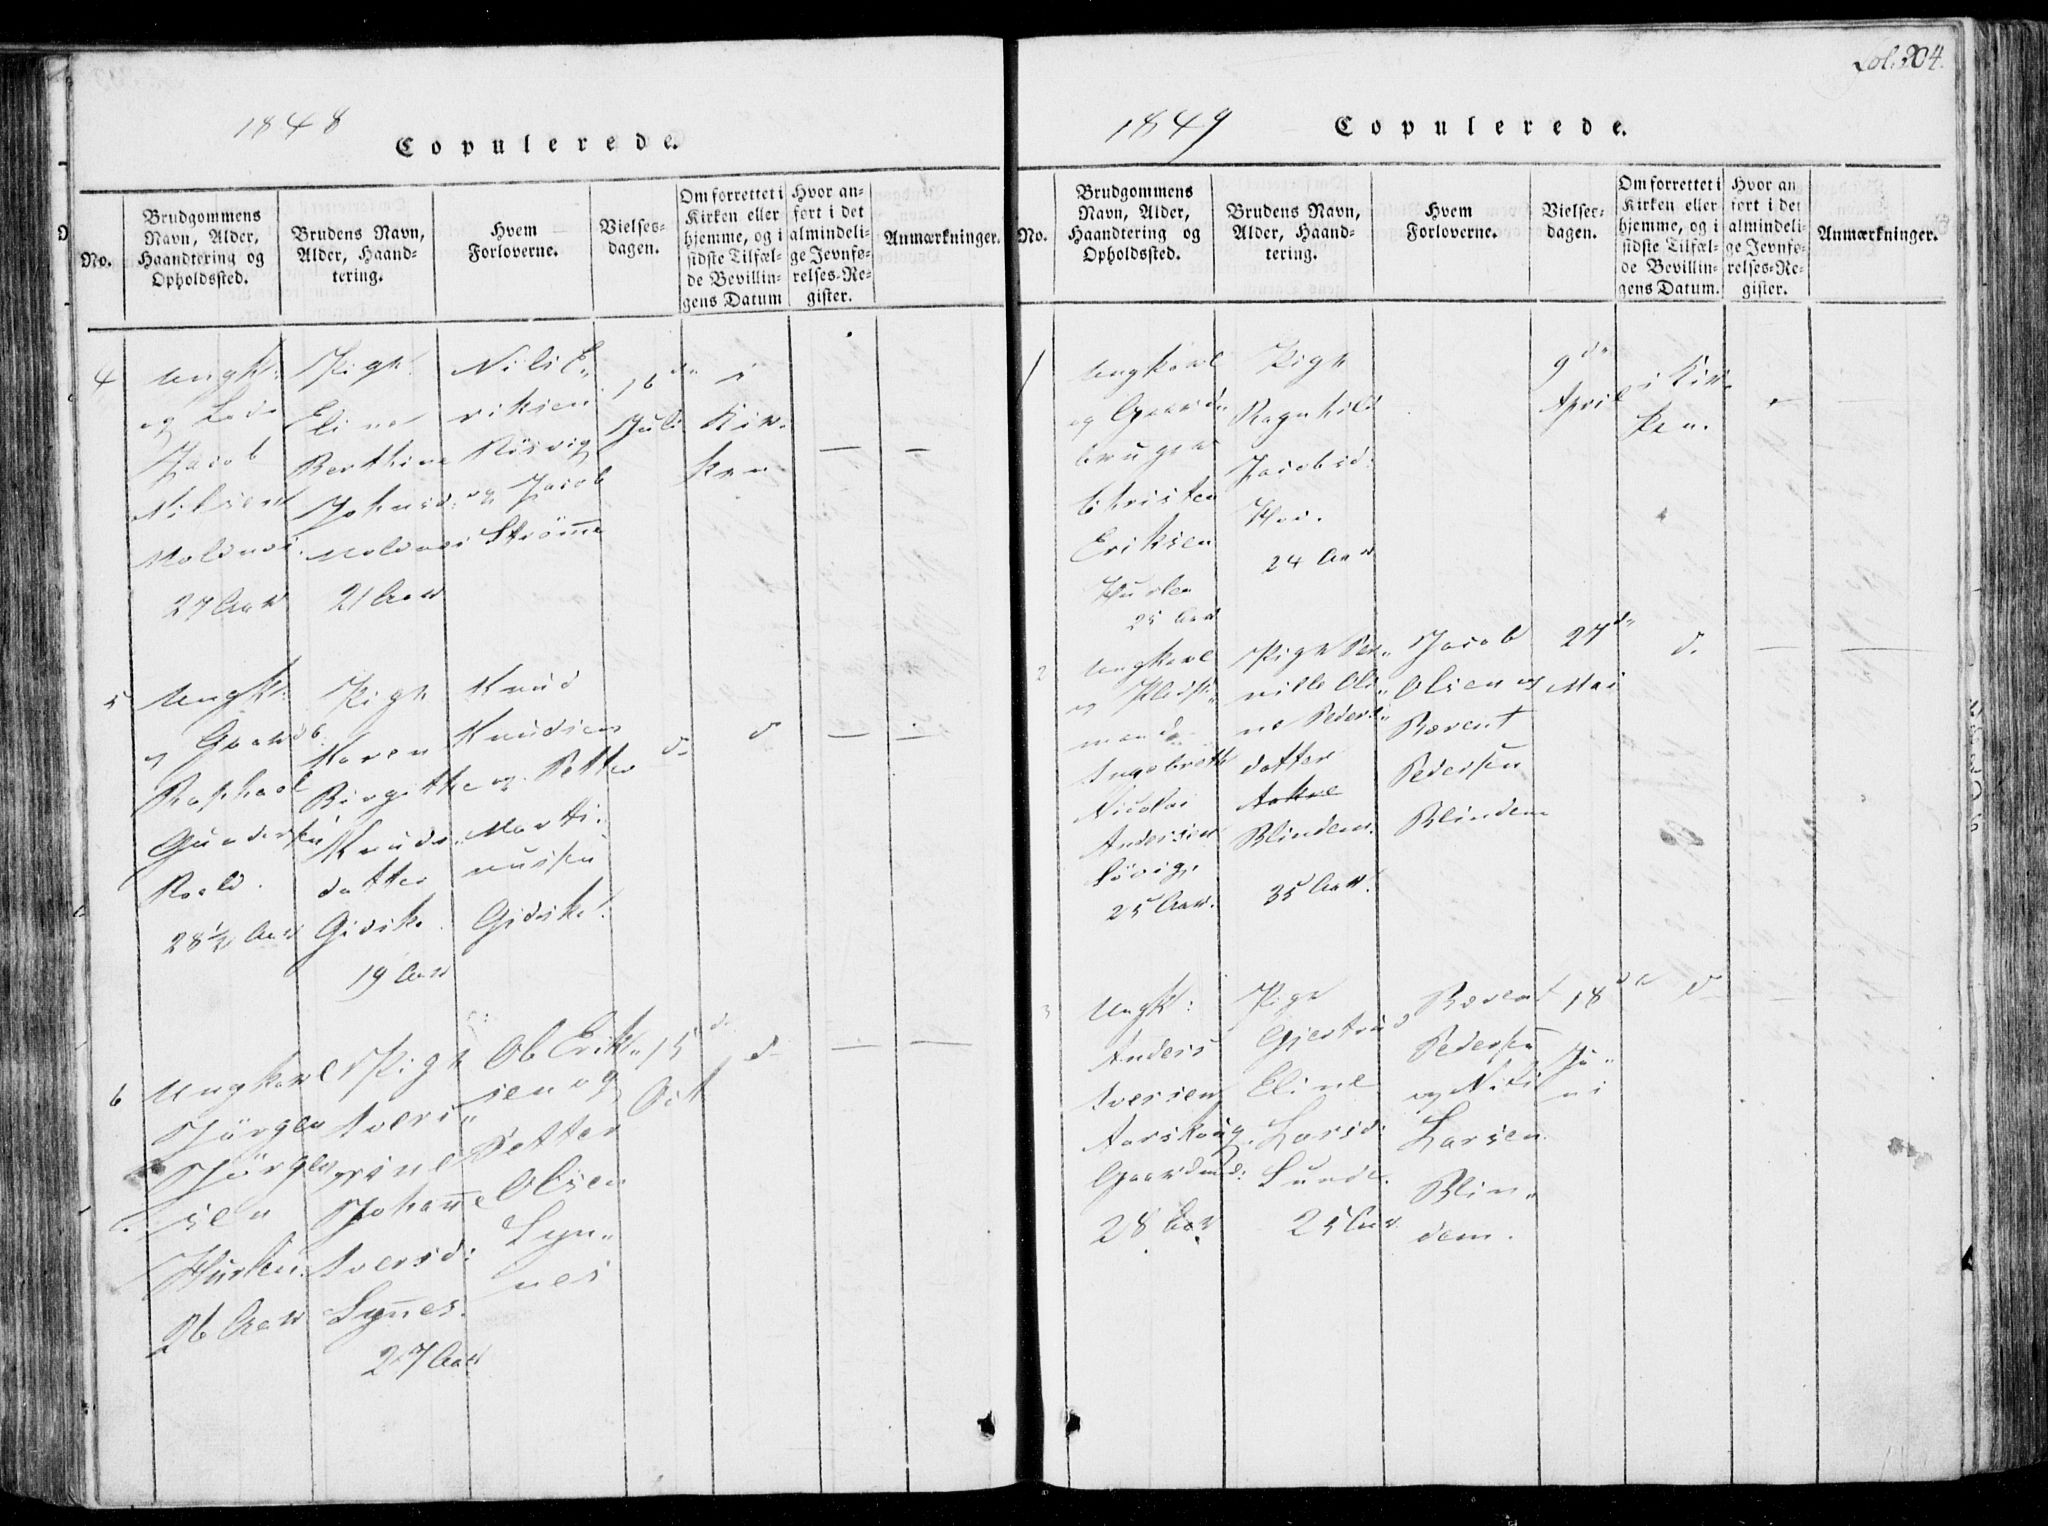 Fol. 204.
1848
Copulerede.
No.
Brudgommens Navn, Alder, Haandtering og Opholdssted.
Brudens Navn, Alder, Haandtering.
Hvem Forloverne.
Vielsesdagen.
Om forrettet i Kirken eller hjemme, og i sidste Tilfælde Bevillingens Datum
Hvor anført i det almindelige Jevnførelses-Register.
Anmærkninger.
4
Ungk:
Jacob
Nilsen
27 Aar
Pige
Eline
Berthine
Johnsd:
21 Aar
Nils E-
riksen
Rösvig
og Jacob
Strömme
16de
Juli
i
Kir-
ken
5
Ungk:
og Gaardb.
Raphael
Gundersen
Roald.
28 1/2 Aar
Pige
Karen
Birgithe
Knuds-
datter
Gidske.
19 Aar
Knud
Knudsen
og Petter
Marti-
nussen
Gidske.
d
d
6
Ungkarl
Jörgen
Jörgen-
sen
Hurlen
26 Aar
Pige
Ivers-
Johanne
Iversd:
Lynes.
27 Aar
Ole Erik-
sen og
Petter
Olsen
Lyn-
nes
15de
Oct
d
1849
Copulerede.
No.
Brudgommens Navn, Alder, Haandtering og Opholdssted.
Brudens Navn, Alder, Haandtering.
Hvem Forloverne.
Vielsesdagen.
Om forrettet i Kirken eller hjemme, og i sidste Tilfælde Bevillingens Datum.
Hvor anført i det almindelige Jevnførelses-Register.
Anmærkninger.
1
Ungkarl
og Gaard-
bruger
Christen
Eriksen
Hurlen
25 Aar
Pige
Ragnhild
Jacobsd:
24 Aar
9de
April
i Kir-
ken.
2
Ungkarl
og
mand
Ingebreth
Nicolai
Andersen
Lövig,
25 Aar.
Pige Per-
nille Oli-
ne Peders-
datter
Blindem.
35 Aar.
Jacob
Olsen og
Berent
Pedersen
Blindem
27de
Mai
d.
3
Ungk:
Anders
Iversen
Gaardmd:
28 Aar
Pige
Gjertrud
Eline
Larsd:
Lunde.
25 Aar
Berent
Pedersen
og Nils
Larsen
Blin-
dem.
18de
Ju-
ni
d